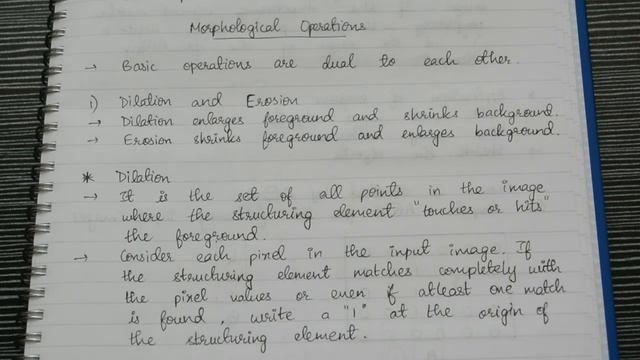 Morphological Operations
→ Basic operations are dual to each other.
1) Dilation and Erosion
→ Dilation enlarges foreground and shrinks background.
→ Erosion shrinks foreground and enlarges background.
* Dilation
→ It is the set of all points in the image
where the structuring element "touches or hits"
the foreground.
→ Consider each pixel in the input image. If
the structuring element matches completely with
the pixel values or even if atleast one match
is found, write a "1" at the origin of
the structuring element.